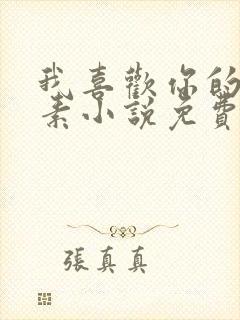 我喜歡你的
素小說免費
張真真